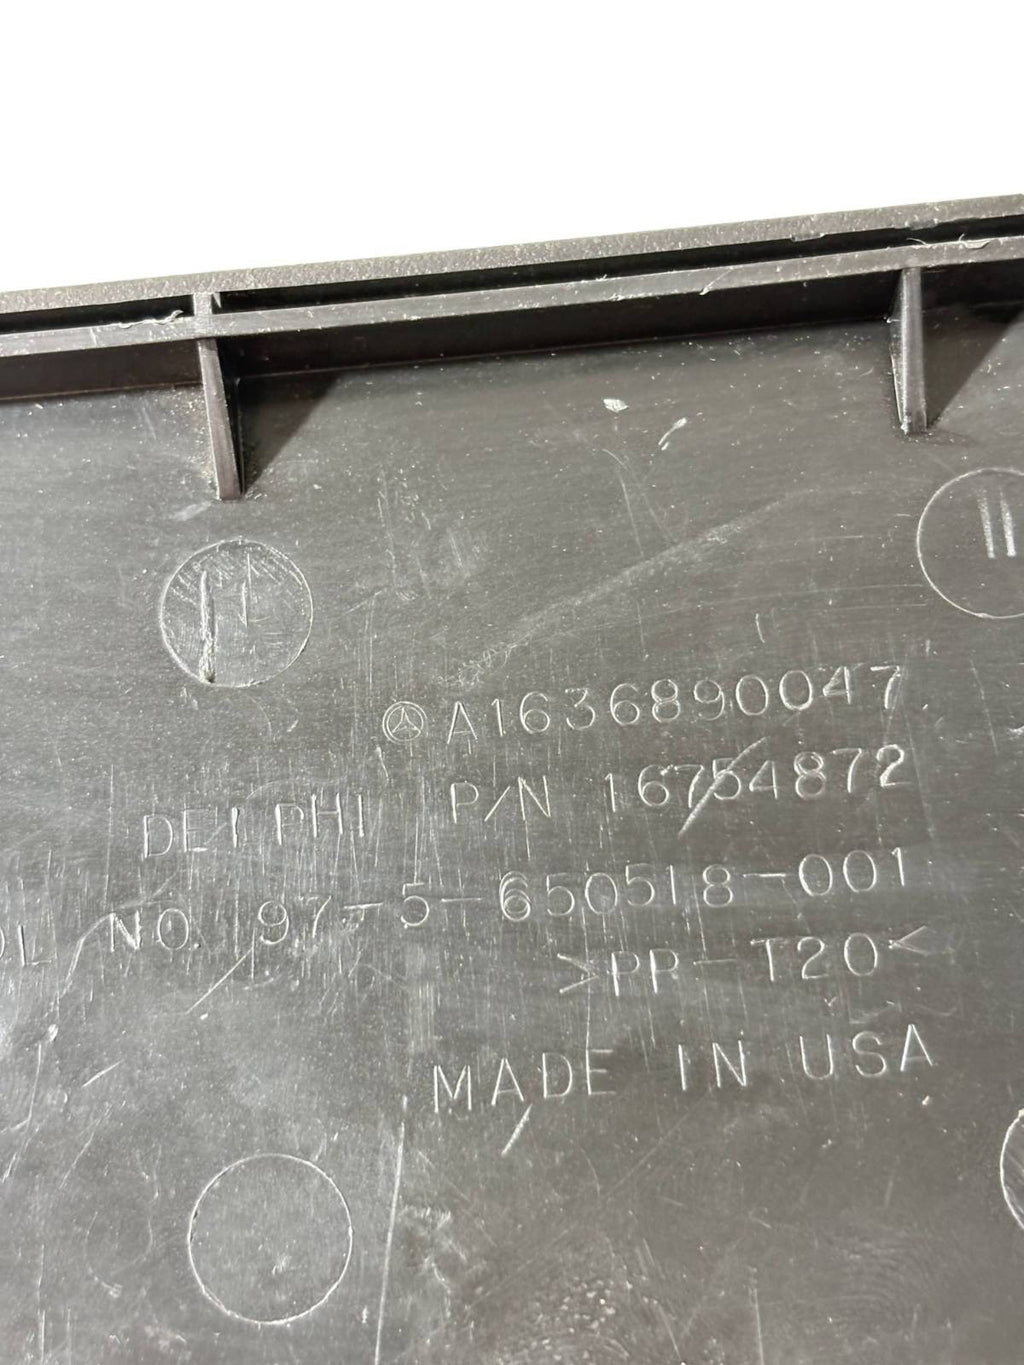 11
A1636890047
DELPHI P/N 16754872
OL NO. 97-5-650518-001
>PP-T20<
MADE IN USA